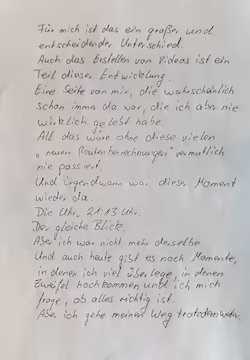 Für mich ist das ein großer und
entscheidender Unterschied.
Auch das Erstellen von Videos ist ein
Teil dieser Entwicklung.
Eine Seite von mir, die wahrscheinlich
schon immer da war, die ich aber nie
wirklich gelebt habe.
All das wäre ohne diese vielen
"neuen Routenberechnungen" vermutlich
nie passiert.
Und irgendwann war dieser Moment
wieder da.
Die Uhr. 21:13 Uhr.
Der gleiche Blick.
Aber ich war nicht mehr dieselbe
Und auch heute gibt es noch Momente,
in denen ich viel überlege, in denen
Zweifel hochkommen und ich mich
frage, ob alles richtig ist.
Aber ich gehe meinen Weg trotzdem weiter.